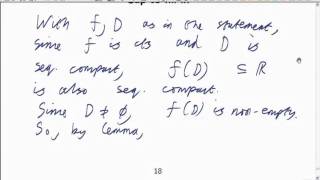 With f, D as in the statement,
since f is cts and D is
seq. compact, f(D) ⊆ ℝ
is also seq. compact.
Since D ≠ ∅, f(D) is non-empty.
So, by Lemma,
18